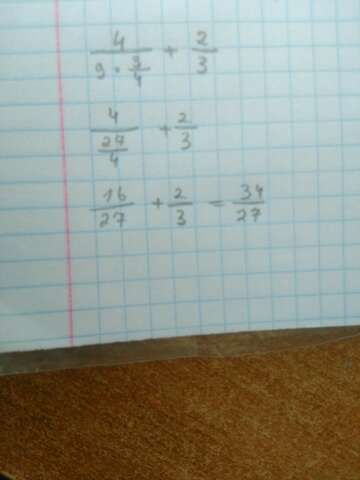 4/(9 · 3/4) + 2/3
4/(27/4) + 2/3
16/27 + 2/3 = 34/27